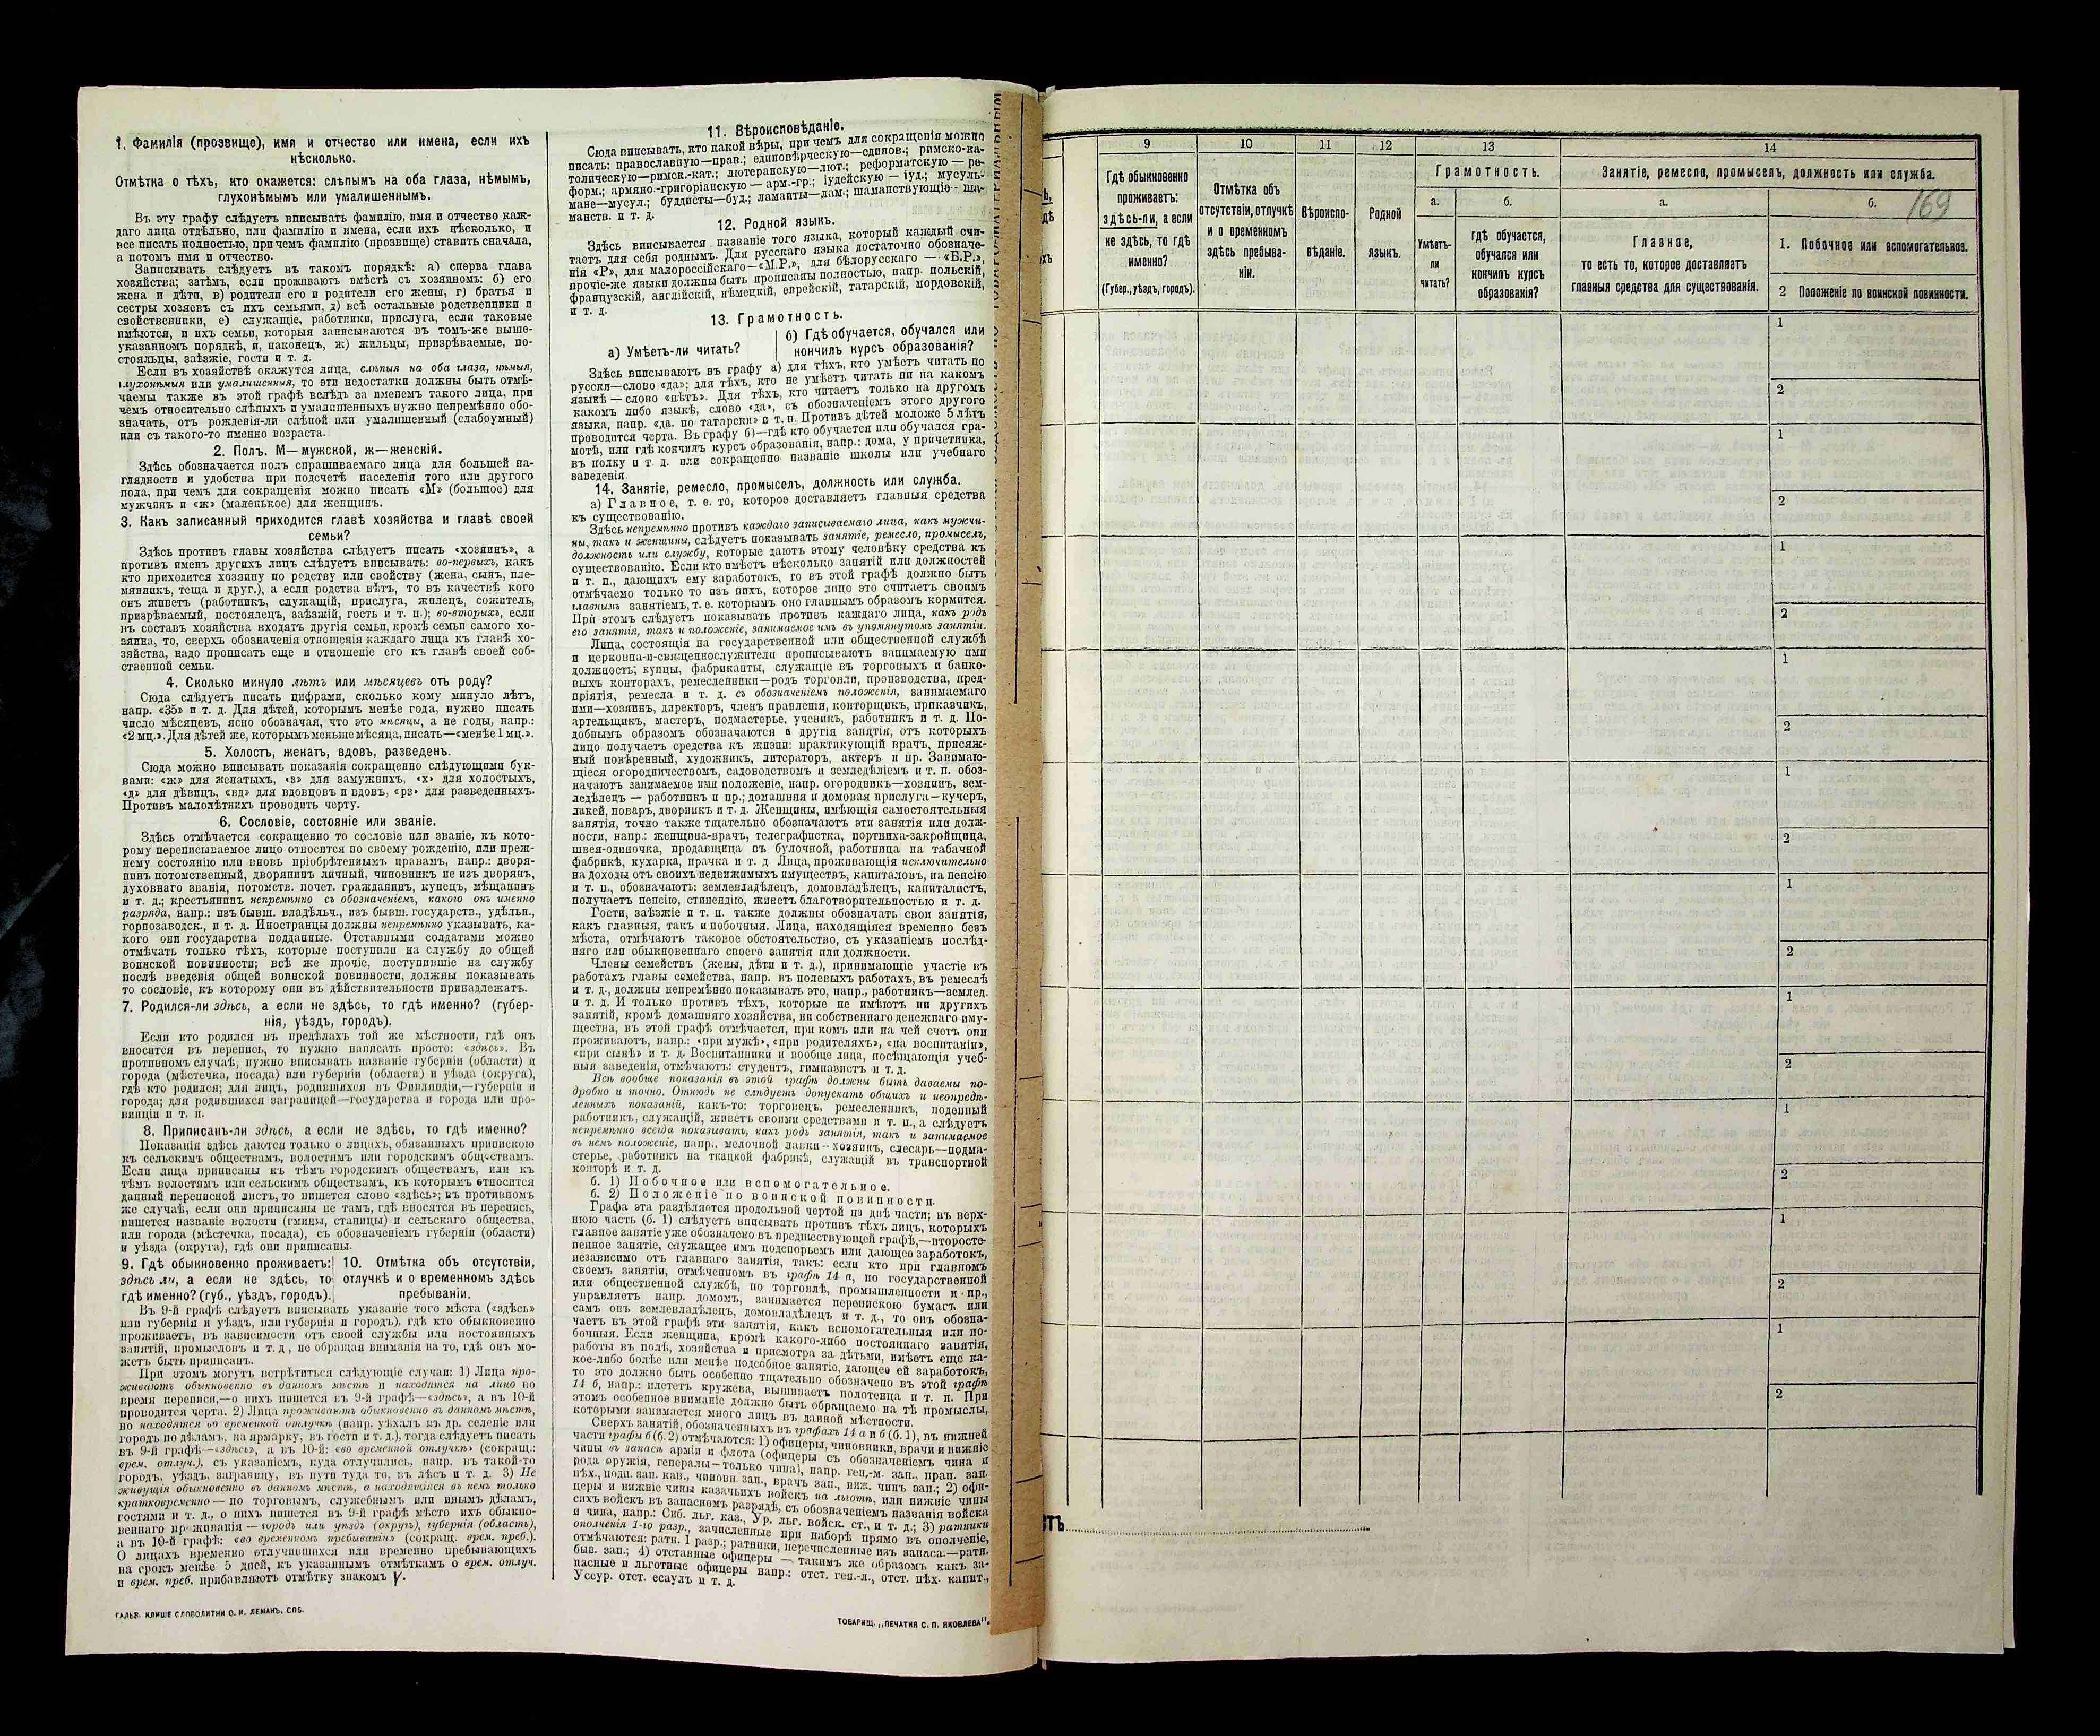 1. Фамилія (прозвище), имя и отчество или имена, если ихъ
нѣсколько.
Отмѣтка о тѣхъ, кто окажется: слѣпымъ на оба глаза, нѣмымъ,
глухонѣмымъ или умалишеннымъ.
Въ эту графу слѣдуетъ вписывать фамилію, имя и отчество каж-
даго лица отдѣльно, или фамилію и имена, если ихъ нѣсколько, и
все писать полностью, при чемъ фамилію (прозвище) ставить сначала,
а потомъ имя и отчество.
Записывать слѣдуетъ въ такомъ порядкѣ: а) сперва глава
хозяйства; затѣмъ, если проживаютъ вмѣстѣ съ хозяиномъ: б) его
жена и дѣти, в) родители его и родители его жены, г) братья и
сестры хозяевъ съ ихъ семьями, д) всѣ остальные родственники и
свойственники, е) служащіе, работники, прислуга, если таковые
имѣются, и ихъ семьи, которыя записываются въ томъ-же выше-
указанномъ порядкѣ, и, наконецъ, ж) жильцы, призрѣваемые, по-
стояльцы, заѣзжіе, гости и т. п.
Если въ хозяйствѣ окажутся лица, слѣпыя на оба глаза, нѣмыя,
глухонѣмыя или умалишенныя, то эти недостатки должны быть отмѣ-
чаемы также въ этой графѣ вслѣдъ за именемъ такого лица, при
чемъ относительно слѣпыхъ и умалишенныхъ нужно непремѣнно обо-
значать, отъ рожденія-ли слѣпой или умалишенный (слабоумный)
или съ такого-то именно возраста.
2. Полъ. М—мужской, ж—женскій.
Здѣсь обозначается полъ спрашиваемаго лица для большей на-
глядности и удобства при подсчетѣ населенія того или другого
пола, при чемъ для сокращенія можно писать «М» (большое) для
мужчинъ и «ж» (маленькое) для женщинъ.
3. Какъ записанный приходится главѣ хозяйства и главѣ своей
семьи?
Здѣсь противъ главы хозяйства слѣдуетъ писать «хозяинъ», а
противъ именъ другихъ лицъ слѣдуетъ вписывать: во-первыхъ, какъ
кто приходится хозяину по родству или свойству (жена, сынъ, пле-
мянникъ, теща и друг.), а если родства нѣтъ, то въ качествѣ кого
онъ живетъ (работникъ, служащій, прислуга, жилецъ, сожитель,
призрѣваемый, постоялецъ, заѣзжій, гость и т. п.); во-вторыхъ, если
въ составъ хозяйства входятъ другія семьи, кромѣ семьи самого хо-
зяина, то, сверхъ обозначенія отношенія каждаго лица къ главѣ хо-
зяйства, надо прописать еще и отношеніе его къ главѣ своей соб-
ственной семьи.
4. Сколько минуло лѣтъ или мѣсяцевъ отъ роду?
Сюда слѣдуетъ писать цифрами, сколько кому минуло лѣтъ,
напр. «35» и т. д. Для дѣтей, которымъ менѣе года, нужно писать
число мѣсяцевъ, ясно обозначая, что это мѣсяцы, а не годы, напр.:
«2 мц.». Для дѣтей же, которымъ меньше мѣсяца, писать—«менѣе 1 мц.».
5. Холостъ, женатъ, вдовъ, разведенъ.
Сюда можно вписывать показанія сокращенно слѣдующими бук-
вами: «ж» для женатыхъ, «з» для замужнихъ, «х» для холостыхъ,
«д» для дѣвицъ, «вд» для вдовцовъ и вдовъ, «рз» для разведенныхъ.
Противъ малолѣтнихъ проводить черту.
6. Сословіе, состояніе или званіе.
Здѣсь отмѣчается сокращенно то сословіе или званіе, къ кото-
рому переписываемое лицо относится по своему рожденію, или преж-
нему состоянію или вновь пріобрѣтеннымъ правамъ, напр.: дворя-
нинъ потомственный, дворянинъ личный, чиновникъ не изъ дворянъ,
духовнаго званія, потомств. почет. гражданинъ, купецъ, мѣщанинъ
и т. д.; крестьянинъ непремѣнно съ обозначеніемъ, какого онъ именно
разряда, напр.: изъ бывш. владѣльч., изъ бывш. государств., удѣльн.,
горнозаводск., и т. д. Иностранцы должны непремѣнно указывать, ка-
кого они государства подданные. Отставными солдатами можно
отмѣчать только тѣхъ, которые поступили на службу до общей
воинской повинности; всѣ же прочіе, поступившіе на службу
послѣ введенія общей воинской повинности, должны показывать
то сословіе, къ которому они въ дѣйствительности принадлежатъ.
7. Родился-ли здѣсь, а если не здѣсь, то гдѣ именно? (губер-
нія, уѣздъ, городъ).
Если кто родился въ предѣлахъ той же мѣстности, гдѣ онъ
вносится въ перепись, то нужно написать просто: «здѣсь». Въ
противномъ случаѣ, нужно вписывать названіе губерніи (области) и
города (мѣстечка, посада) или губерніи (области) и уѣзда (округа),
гдѣ кто родился; для лицъ, родившихся въ Финляндіи,—губерніи и
города; для родившихся заграницей—государства и города или про-
винціи и т. п.
8. Приписанъ-ли здѣсь, а если не здѣсь, то гдѣ именно?
Показанія здѣсь даются только о лицахъ, обязанныхъ припискою
къ сельскимъ обществамъ, волостямъ или городскимъ обществамъ.
Если лица приписаны къ тѣмъ городскимъ обществамъ, или къ
тѣмъ волостямъ или сельскимъ обществамъ, къ которымъ относится
данный переписной листъ, то пишется слово «здѣсь»; въ противномъ
же случаѣ, если они приписаны не тамъ, гдѣ вносятся въ перепись,
пишется названіе волости (гмины, станицы) и сельскаго общества,
или города (мѣстечка, посада), съ обозначеніемъ губерніи (области)
и уѣзда (округа), гдѣ они приписаны.
9. Гдѣ обыкновенно проживаетъ:
здѣсь ли, а если не здѣсь, то
гдѣ именно? (губ., уѣздъ, городъ).
10. Отмѣтка объ отсутствіи,
отлучкѣ и о временномъ здѣсь
пребываніи.
Въ 9-й графѣ слѣдуетъ вписывать указаніе того мѣста («здѣсь»
или губернія и уѣздъ, или губернія и городъ), гдѣ кто обыкновенно
проживаетъ, въ зависимости отъ своей службы или постоянныхъ
занятій, промысловъ и т. д., не обращая вниманія на то, гдѣ онъ мо-
жетъ быть приписанъ.
При этомъ могутъ встрѣтиться слѣдующіе случаи: 1) Лица про-
живаютъ обыкновенно въ данномъ мѣстѣ и находятся на лицо во
время переписи,—о нихъ пишется въ 9-й графѣ—«здѣсь», а въ 10-й
проводится черта. 2) Лица проживаютъ обыкновенно въ данномъ мѣстѣ,
но находятся во временной отлучкѣ (напр. уѣхалъ въ др. селеніе или
городъ по дѣламъ, на ярмарку, въ гости и т. д.), тогда слѣдуетъ писать
въ 9-й графѣ—«здѣсь», а въ 10-й: «во временной отлучкѣ» (сокращ.:
врем. отлуч.), съ указаніемъ, куда отлучились, напр. въ такой-то
городъ, уѣздъ, заграницу, въ пути туда то, въ лѣсъ и т. д. 3) Не
живущія обыкновенно въ данномъ мѣстѣ, а находящіяся въ немъ только
кратковременно—по торговымъ, служебнымъ или инымъ дѣламъ,
гостями и т. д., о нихъ пишется въ 9-й графѣ мѣсто ихъ обыкно-
веннаго проживанія—городъ или уѣздъ (округъ), губернія (область),
а въ 10-й графѣ: «во временномъ пребываніи» (сокращ. врем. преб.).
О лицахъ временно отлучившихся или временно пребывающихъ
на срокъ менѣе 5 дней, къ указаннымъ отмѣткамъ о врем. отлуч.
и врем. преб. прибавляютъ отмѣтку знакомъ V.
ГАЛЬВ. КЛИШЕ СЛОВОЛИТНИ О. И. ЛЕМАНЪ, СПБ.
11. Вѣроисповѣданіе.
Сюда вписывать, кто какой вѣры, при чемъ для сокращенія можно
писать: православную—прав.; единовѣрческую—единов.; римско-ка-
толическую—римск.-кат.; лютеранскую—лют.; реформатскую—ре-
форм.; армяно.-григоріанскую—арм.-гр.; іудейскую—іуд.; мусуль-
мане—мусул.; буддисты—буд.; ламаиты—лам.; шаманствующіе—ша-
манств. и т. д.
12. Родной языкъ.
Здѣсь вписывается названіе того языка, который каждый счи-
таетъ для себя роднымъ. Для русскаго языка достаточно обозначе-
нія «Р», для малороссійскаго—«М.Р.», для бѣлорусскаго—«Б.Р.»,
прочіе-же языки должны быть прописаны полностью, напр. польскій,
французскій, англійскій, нѣмецкій, еврейскій, татарскій, мордовскій,
и т. д.
13. Грамотность.
а) Умѣетъ-ли читать?
б) Гдѣ обучается, обучался или
кончилъ курсъ образованія?
Здѣсь вписываютъ въ графу а) для тѣхъ, кто умѣетъ читать по
русски—слово «да»; для тѣхъ, кто не умѣетъ читать ни на какомъ
языкѣ—слово «нѣтъ». Для тѣхъ, кто читаетъ только на другомъ
какомъ либо языкѣ, слово «да», съ обозначеніемъ этого другого
языка, напр. «да, по татарски» и т. п. Противъ дѣтей моложе 5 лѣтъ
проводится черта. Въ графу б)—гдѣ кто обучается или обучался гра-
мотѣ, или гдѣ кончилъ курсъ образованія, напр.: дома, у причетника,
въ полку и т. д. или сокращенно названіе школы или учебнаго
заведенія.
14. Занятіе, ремесло, промыселъ, должность или служба.
а) Главное, т. е. то, которое доставляетъ главныя средства
къ существованію.
Здѣсь непремѣнно противъ каждаго записываемаго лица, какъ мужчи-
ны, такъ и женщины, слѣдуетъ показывать занятіе, ремесло, промыселъ,
должность или службу, которые даютъ этому человѣку средства къ
существованію. Если кто имѣетъ нѣсколько занятій или должностей
и т. п., дающихъ ему заработокъ, то въ этой графѣ должно быть
отмѣчаемо только то изъ нихъ, которое лицо это считаетъ своимъ
главнымъ занятіемъ, т. е. которымъ оно главнымъ образомъ кормится.
При этомъ слѣдуетъ показывать противъ каждаго лица, какъ родъ
его занятія, такъ и положеніе, занимаемое имъ въ упомянутомъ занятіи.
Лица, состоящія на государственной или общественной службѣ
и церковно-и-священнослужители прописываютъ занимаемую ими
должность; купцы, фабриканты, служащіе въ торговыхъ и банко-
выхъ конторахъ, ремесленники—родъ торговли, производства, пред-
пріятія, ремесла и т. д. съ обозначеніемъ положенія, занимаемаго
ими—хозяинъ, директоръ, членъ правленія, конторщикъ, приказчикъ,
артельщикъ, мастеръ, подмастерье, ученикъ, работникъ и т. д. По-
добнымъ образомъ обозначаются и другія занятія, отъ которыхъ
лицо получаетъ средства къ жизни: практикующій врачъ, присяж-
ный повѣренный, художникъ, литераторъ, актеръ и пр. Занимаю-
щіеся огородничествомъ, садоводствомъ и земледѣліемъ и т. п. обоз-
начаютъ занимаемое ими положеніе, напр. огородникъ—хозяинъ, зем-
ледѣлецъ—работникъ и пр.; домашняя и домовая прислуга—кучеръ,
лакей, поваръ, дворникъ и т. д. Женщины, имѣющія самостоятельныя
занятія, точно также тщательно обозначаютъ эти занятія или долж-
ности, напр.: женщина-врачъ, телеграфистка, портниха-закройщица,
швея-одиночка, продавщица въ булочной, работница на табачной
фабрикѣ, кухарка, прачка и т. д. Лица, проживающія исключительно
на доходы отъ своихъ недвижимыхъ имуществъ, капиталовъ, на пенсію
и т. п., обозначаютъ: землевладѣлецъ, домовладѣлецъ, капиталистъ,
получаетъ пенсію, стипендію, живетъ благотворительностью и т. д.
Гости, заѣзжіе и т. п. также должны обозначать свои занятія,
какъ главныя, такъ и побочныя. Лица, находящіяся временно безъ
мѣста, отмѣчаютъ таковое обстоятельство, съ указаніемъ послѣд-
няго или обыкновеннаго своего занятія или должности.
Члены семействъ (жены, дѣти и т. д.), принимающіе участіе въ
работахъ главы семейства, напр. въ полевыхъ работахъ, въ ремеслѣ
и т. д., должны непремѣнно показывать это, напр., работникъ—землед.
и т. д. И только противъ тѣхъ, которые не имѣютъ ни другихъ
занятій, кромѣ домашняго хозяйства, ни собственнаго денежнаго иму-
щества, въ этой графѣ отмѣчается, при комъ или на чей счетъ они
проживаютъ, напр.: «при мужѣ», «при родителяхъ», «на воспитаніи»,
«при сынѣ» и т. д. Воспитанники и вообще лица, посѣщающія учеб-
ныя заведенія, отмѣчаютъ: студентъ, гимназистъ и т. д.
Всѣ вообще показанія въ этой графѣ должны быть даваемы по-
дробно и точно. Отнюдь не слѣдуетъ допускать общихъ и неопредѣ-
ленныхъ показаній, какъ-то: торговецъ, ремесленникъ, поденный
работникъ, служащій, живетъ своими средствами и т. п., а слѣдуетъ
непремѣнно всегда показывать, какъ родъ занятія, такъ и занимаемое
въ немъ положеніе, напр., мелочной лавки—хозяинъ, слесарь—подма-
стерье, работникъ на ткацкой фабрикѣ, служащій въ транспортной
конторѣ и т. д.
б. 1) Побочное или вспомогательное.
б. 2) Положеніе по воинской повинности.
Графа эта раздѣляется продольной чертой на двѣ части; въ верх-
нюю часть (б. 1) слѣдуетъ вписывать противъ тѣхъ лицъ, которыхъ
главное занятіе уже обозначено въ предшествующей графѣ,—второсте-
пенное занятіе, служащее имъ подспорьемъ или дающее заработокъ,
независимо отъ главнаго занятія, такъ: если кто при главномъ
своемъ занятіи, отмѣченномъ въ графѣ 14 а, по государственной
или общественной службѣ, по торговлѣ, промышленности и пр.,
управляетъ напр. домомъ, занимается перепискою бумагъ или
самъ онъ землевладѣлецъ, домовладѣлецъ и т. д., то онъ обозна-
чаетъ въ этой графѣ эти занятія, какъ вспомогательныя или по-
бочныя. Если женщина, кромѣ какого-либо постояннаго занятія,
работы въ полѣ, хозяйства и присмотра за дѣтьми, имѣетъ еще ка-
кое-либо болѣе или менѣе подсобное занятіе, дающее ей заработокъ,
то это должно быть особенно тщательно обозначено въ этой графѣ
14 б, напр.: плететъ кружева, вышиваетъ полотенца и т. п. При
этомъ особенное вниманіе должно быть обращаемо на тѣ промыслы,
которыми занимается много лицъ въ данной мѣстности.
Сверхъ занятій, обозначенныхъ въ графахъ 14 а и б (б. 1), въ нижней
части графы б (б. 2) отмѣчаются: 1) офицеры, чиновники, врачи и нижніе
чины въ запасѣ арміи и флота (офицеры съ обозначеніемъ чина и
рода оружія, генералы—только чина), напр. ген.-м. зап., прап. зап.
пѣх., подп. зап. кав., чиновн. зап., врачъ зап., ниж. чинъ зап.; 2) офи-
церы и нижніе чины казачьихъ войскъ на льготѣ, или нижніе чины
сихъ войскъ въ запасномъ разрядѣ, съ обозначеніемъ названія войска
и чина, напр.: Сиб. льг. каз., Ур. льг. войск. ст., и т. д.; 3) ратники
ополченія 1-го разр., зачисленные при наборѣ прямо въ ополченіе,
отмѣчаются: ратн. 1 разр.; ратники, перечисленные изъ запаса.—ратн.
быв. зап.; 4) отставные офицеры — такимъ же образомъ какъ за-
пасные и льготные офицеры напр.: отст. ген.-л., отст. пѣх. капит.,
Уссур. отст. есаулъ и т. д.
ТОВАРИЩ. „ПЕЧАТНЯ С. П. ЯКОВЛЕВА“.
9
Гдѣ обыкновенно
проживаетъ:
здѣсь-ли, а если
не здѣсь, то гдѣ
именно?
(Губер., уѣздъ, городъ).
10
Отмѣтка объ
отсутствіи, отлучкѣ
и о временномъ
здѣсь пребыва-
ніи.
11
Вѣроиспо-
вѣданіе.
12
Родной
языкъ.
13
Грамотность.
а.
Умѣетъ-
ли
читать?
б.
гдѣ обучается,
обучался или
кончилъ курсъ
образованія?
14
Занятіе, ремесло, промыселъ, должность или служба.
а.
Главное,
то есть то, которое доставляетъ
главныя средства для существованія.
б.
169
1. Побочное или вспомогательное.
2 Положеніе по воинской повинности.
1
2
1
2
1
2
1
2
1
2
1
2
1
2
1
2
1
2
1
2